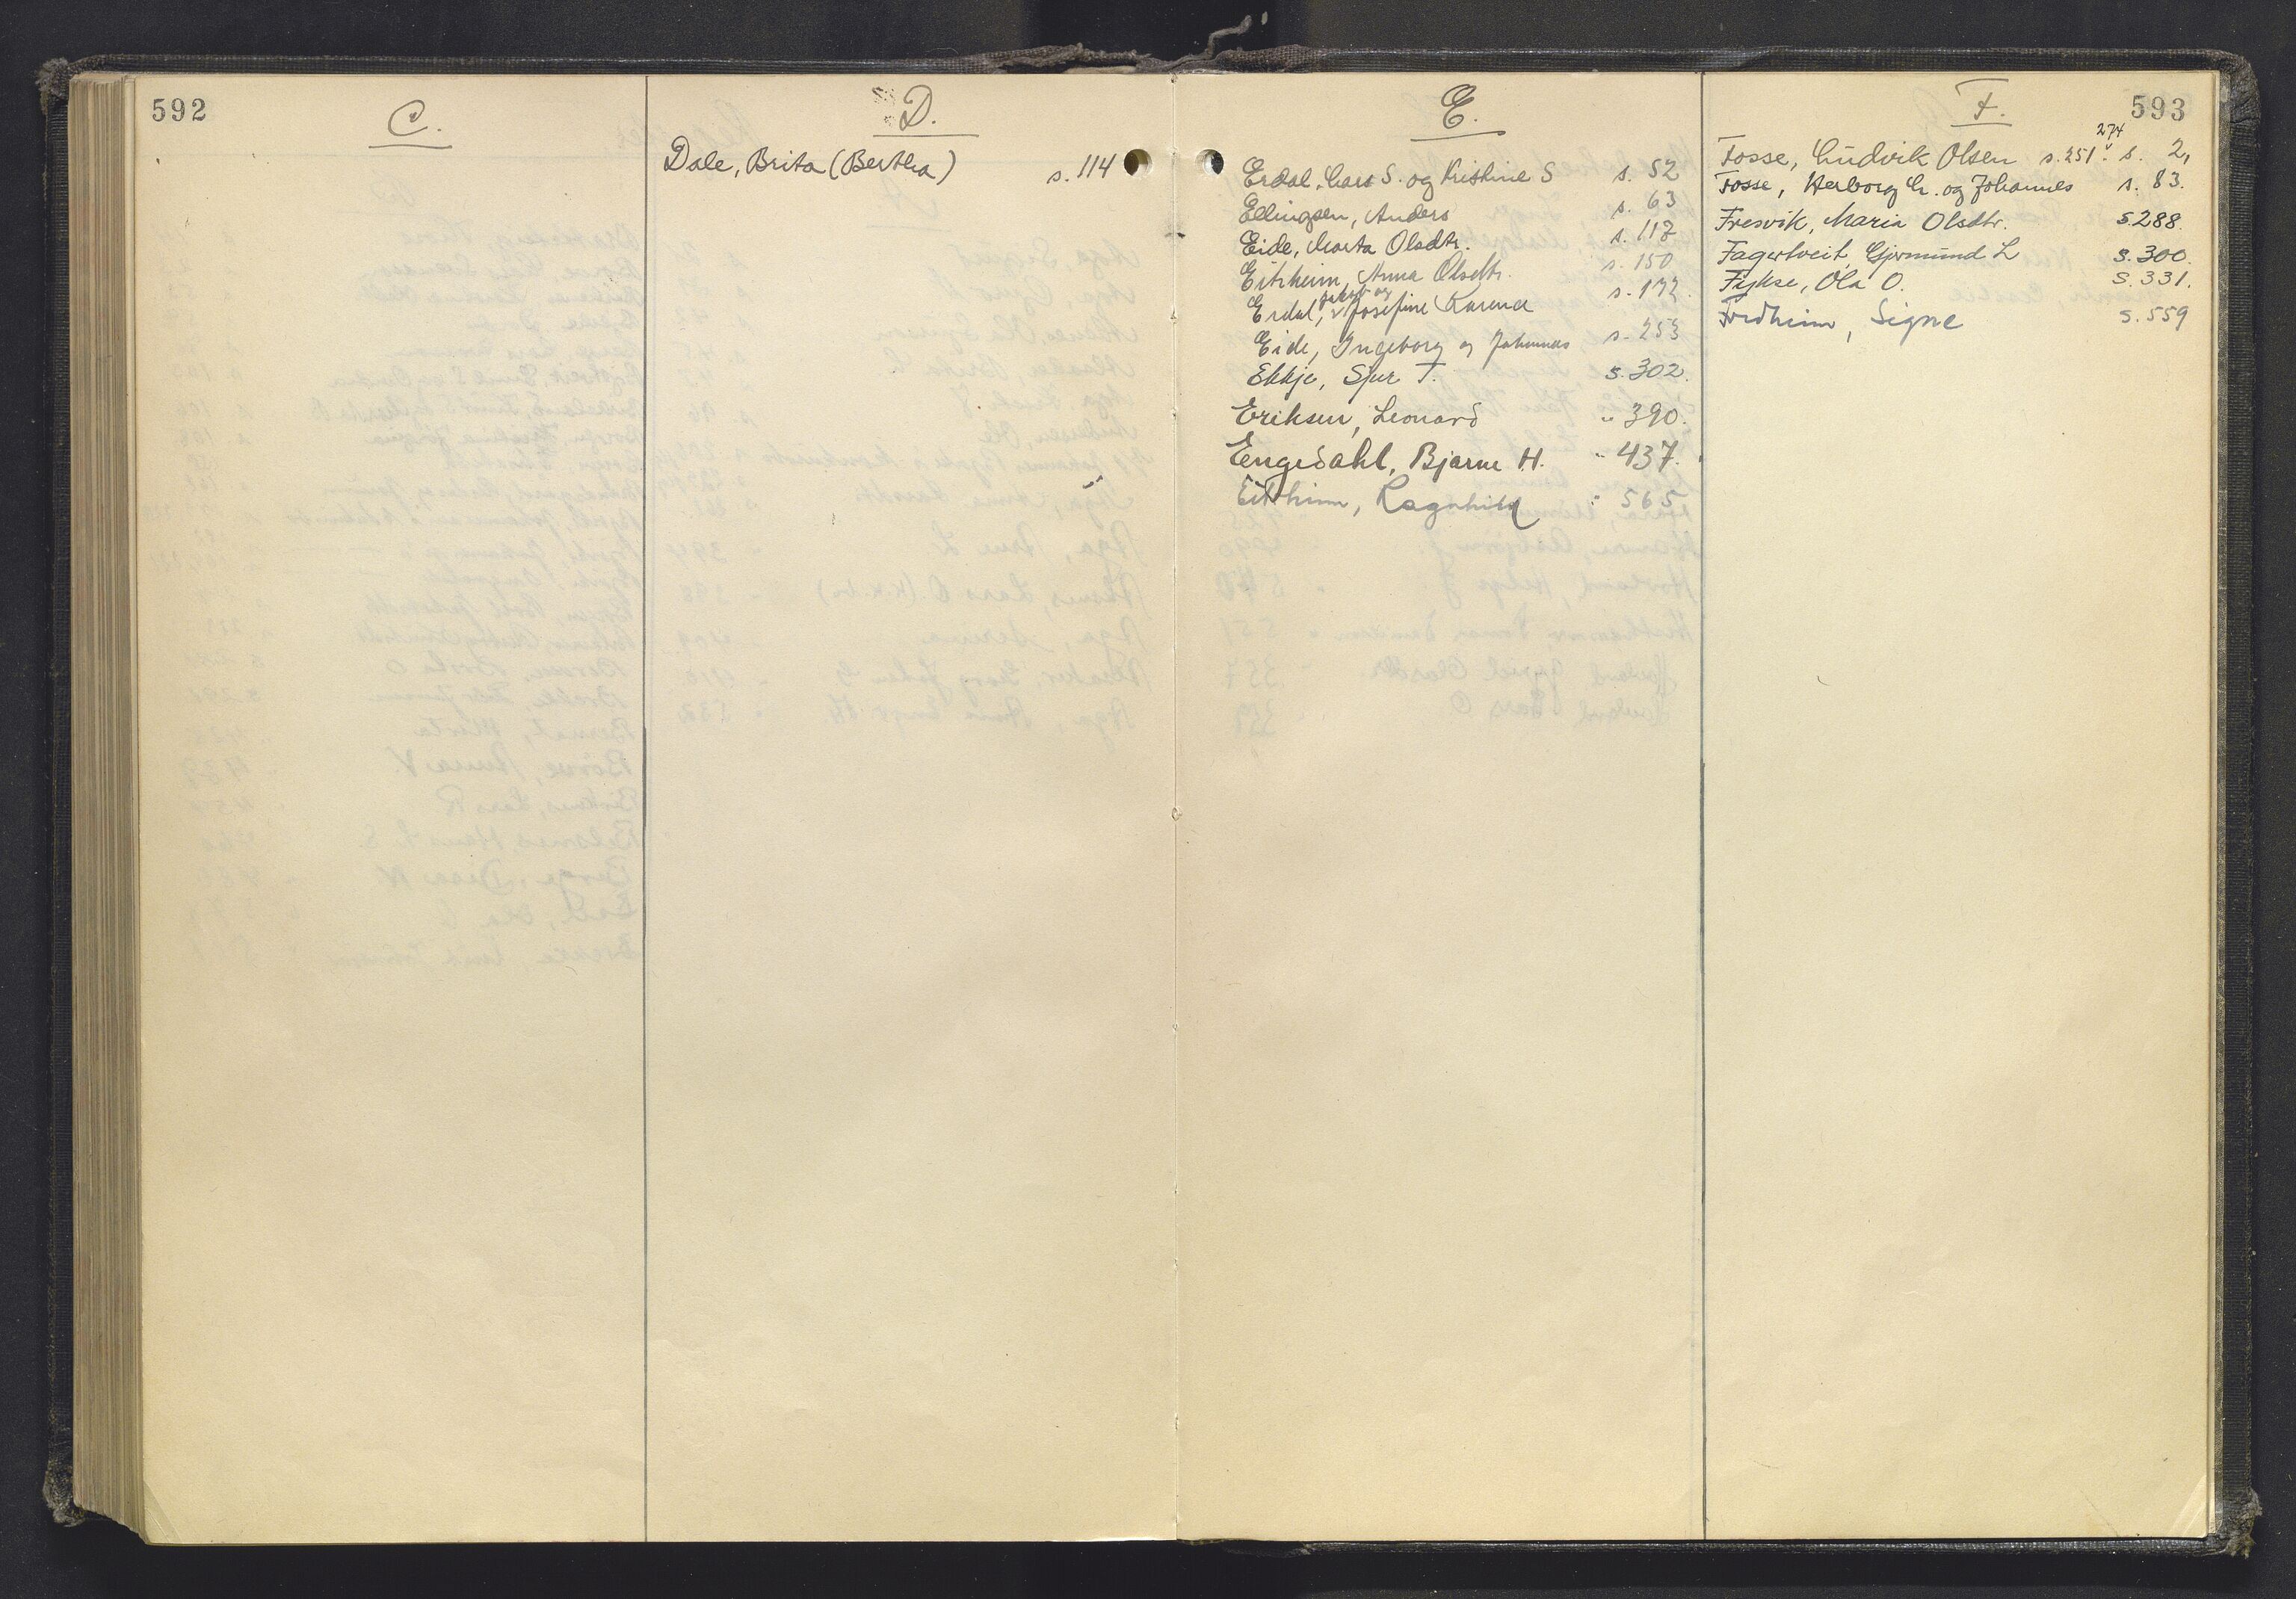 592
C.
D.
Dale, Brita (Bertha) s. 114
E.
Erdal, Lars S. og Kristine S s. 52
Ellingsen, Anders s. 63
Eide, Marta Olsdtr. s. 117
Eitrheim, Anna Olsdtr. s. 150
Jakob og
Erdal, v Josefine Karena s. 172.
Eide, Ingeborg og Johannes s. 253
Ekkje, Sjur T. s. 302.
Eriksen, Leonard " 390.
Engedahl, Bjarne H. " 437.
Eitrheim, Ragnhild " 565
593
F.
274
Fosse, Ludvik Olsen s. 251. v s. 2,
Fosse, Herborg L. og Johannes s. 83.
Fresvik, Maria Olsdtr. s. 288.
Fagertveit, Gjermund L s. 300.
Fykse, Ola O. s. 331.
Fordheim, Signe s. 559